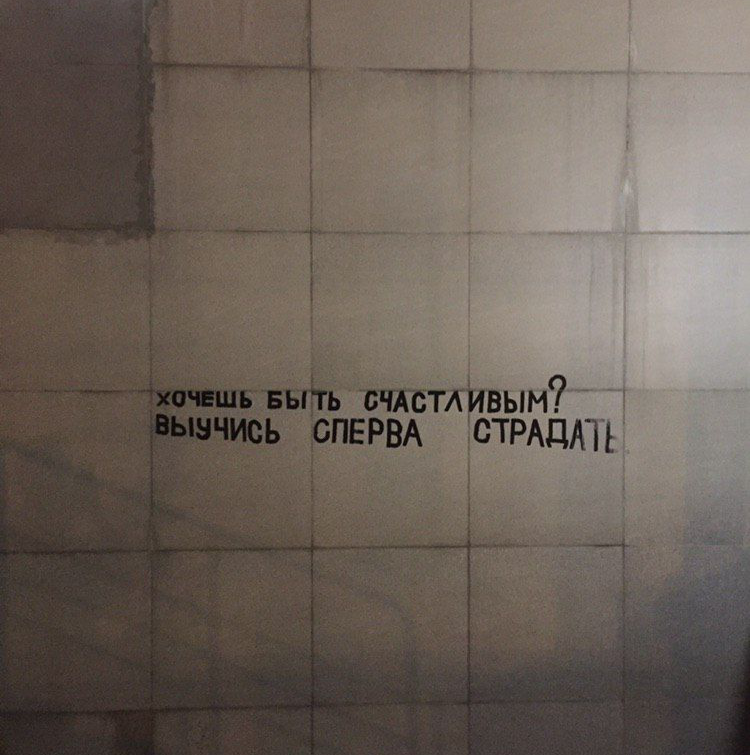 ХОЧЕШЬ БЫТЬ СЧАСТЛИВЫМ?
ВЫУЧИСЬ СПЕРВА СТРАДАТЬ